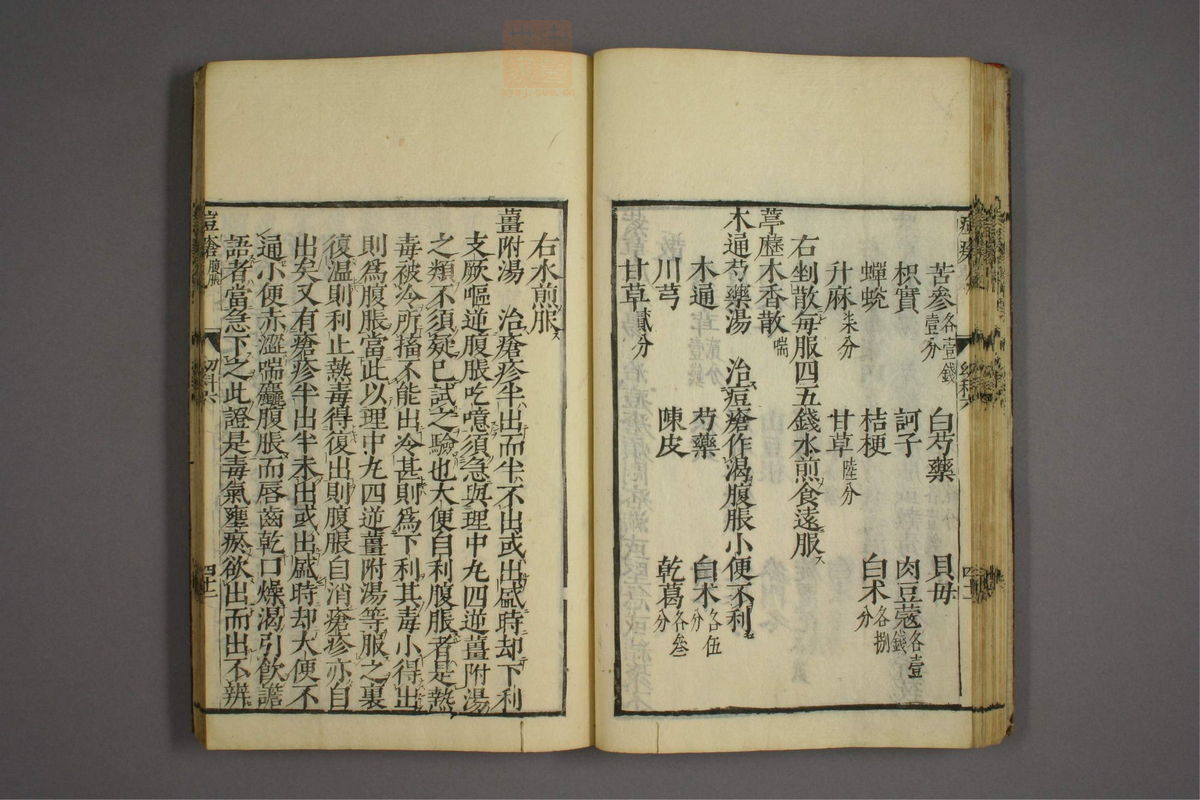 苦參各壹錢壹分　白芍藥　貝毋
枳實　訶子　肉豆蔻各壹錢
蟬蛻　桔梗　白术各捌分
升麻柒分　甘草陸分
右剉散每服四五錢水煎食遠服
葶藶木香散喘
木通芍藥湯　治痘瘡作渴腹脹小便不利
木通　芍藥　白术各伍分
川芎　陳皮　乾葛各叁分
甘草貳分
右水煎服
薑附湯　治瘡疹半出而半不出或出盛時却下利
支厥嘔逆腹脹吃噫須急與理中九四逆薑附湯
之類不須疑巳試之驗也大便自利腹脹者是熱
毒被冷所搐不能出冷甚則爲下利其毒小得出
則爲腹脹當此以理中九四逆薑附湯等服之裏
復温則利止熱毒得復出則腹脹自消瘡疹亦自
出矣又有瘡疹半出半未出或出盛時却大便不
通小便赤澀喘麤腹脹而唇齒乾口燥渴引飲譫
語者當急下之此證是毒氣壅瘀欲出而出不辨
痘瘡腹脹　幼科六　四十二